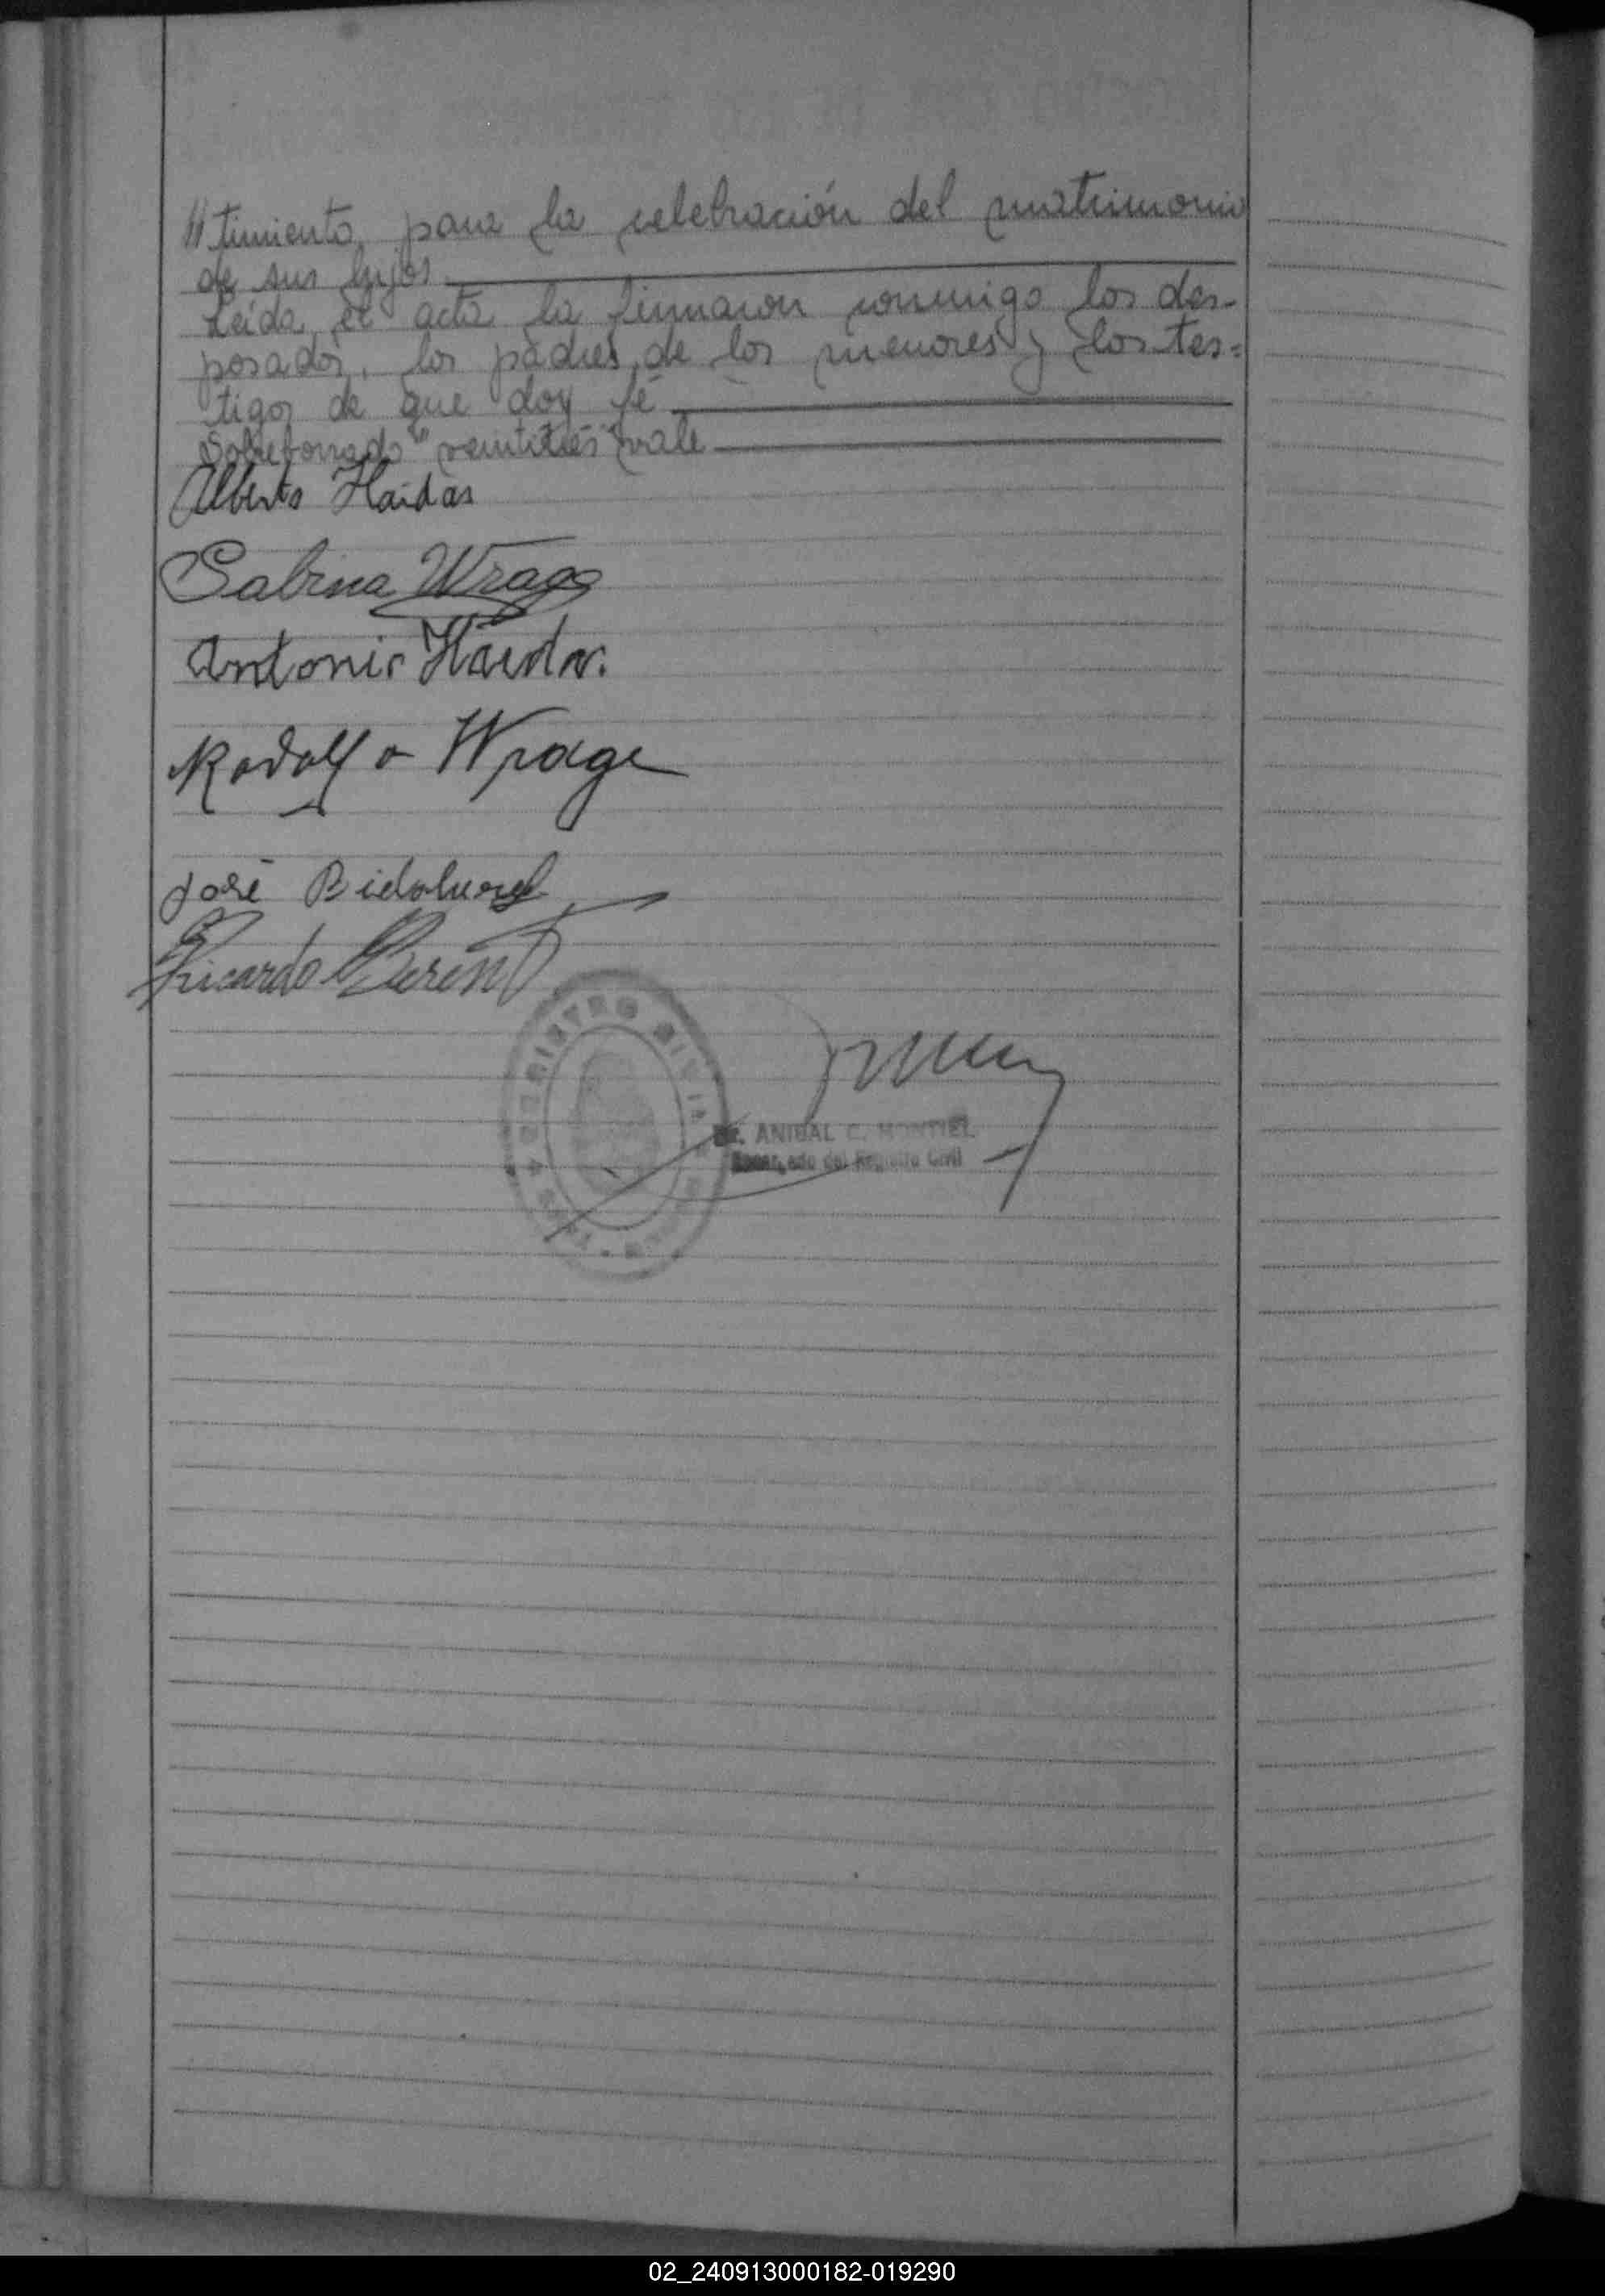 // timiento, para la celebración del matrimonio
de sus hijos
Leída el acta la firmaron conmigo los des-
posados, los padres de los menores y los tes=
tigos de que doy fé
Sobreborrado "veintitres" vale
Alberto Haidas
Sabina Wrage
Antonio
Rodolfo Wrage
José
Ricardo
REGISTRO CIVIL
Dr. ANIBAL C. MONTIEL
Encargado del Registro Civil
02_240913000182-019290